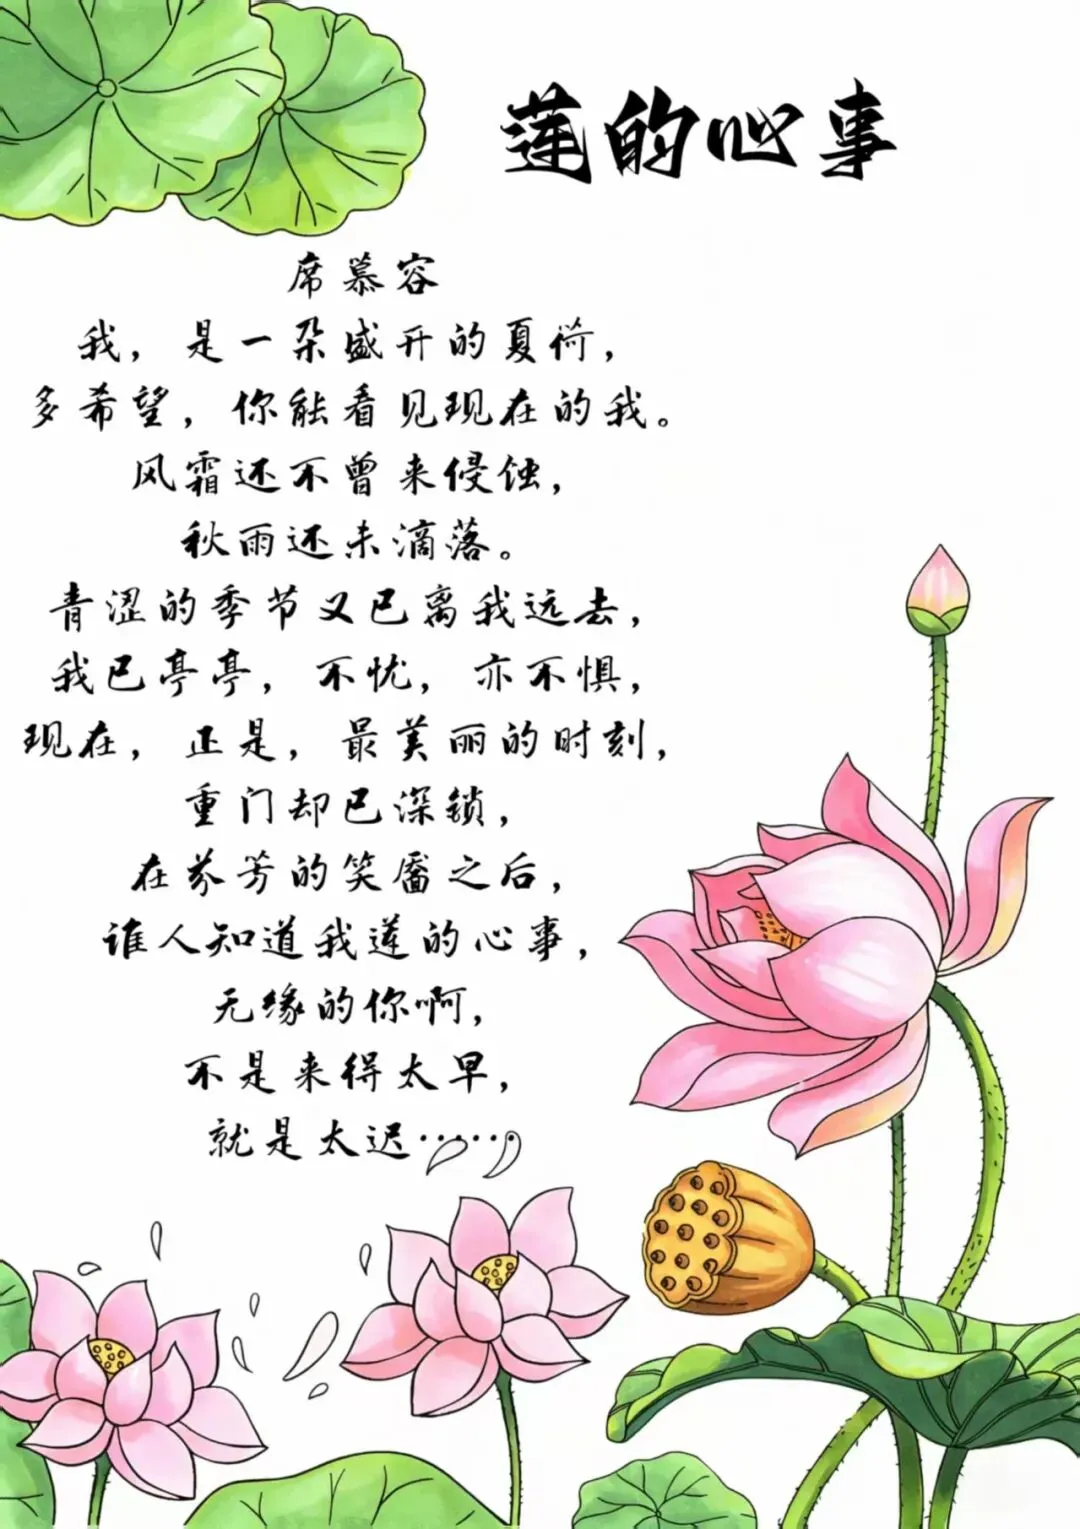 莲的心事
席慕容
我，是一朵盛开的夏荷，
多希望，你能看见现在的我。
风霜还不曾来侵蚀，
秋雨还未滴落。
青涩的季节又已离我远去，
我已亭亭，不忧，亦不惧，
现在，正是，最美丽的时刻，
重门却已深锁，
在芬芳的笑靥之后，
谁人知道我莲的心事，
无缘的你啊，
不是来得太早，
就是太迟……